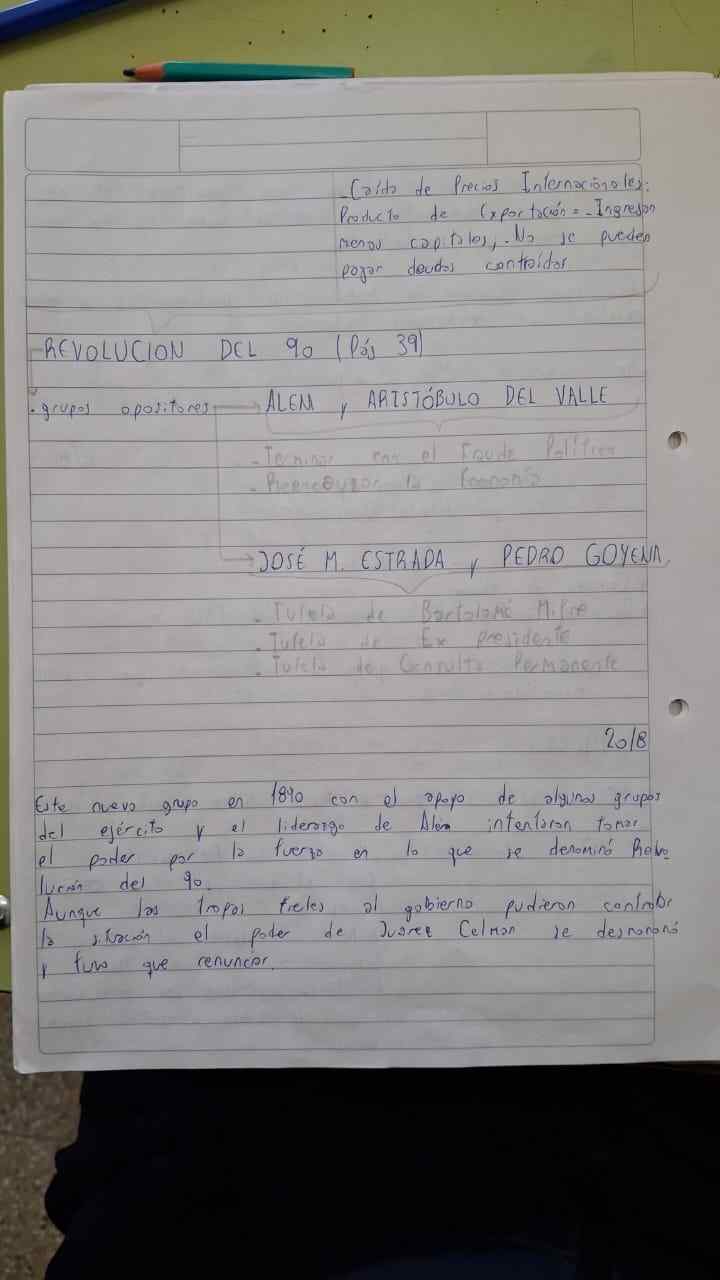 -Caída de Precios Internacionales:
Producto de Exportación = -Ingresan
menos capitales, -No se pueden
pagar deudas contraídas
REVOLUCION DEL 90 (Pág 39)
- grupos opositores
ALEM y ARISTÓBULO DEL VALLE
- Terminar con el Fraude Político
- la Economía
JOSÉ M. ESTRADA y PEDRO GOYENA
- Tutela de Bartolomé Mitre
- Tutela de Ex presidente
- Tutela de Consulta Permanente
20/8
Este nuevo grupo en 1890 con el apoyo de algunos grupos
del ejército y el liderazgo de Alem intentaron tomar
el poder por la fuerza en lo que se denominó Revo
lución del 90.
Aunque las tropas fieles al gobierno pudieron controlar
la situación el poder de Juarez Celman se desmoronó
y tuvo que renunciar.